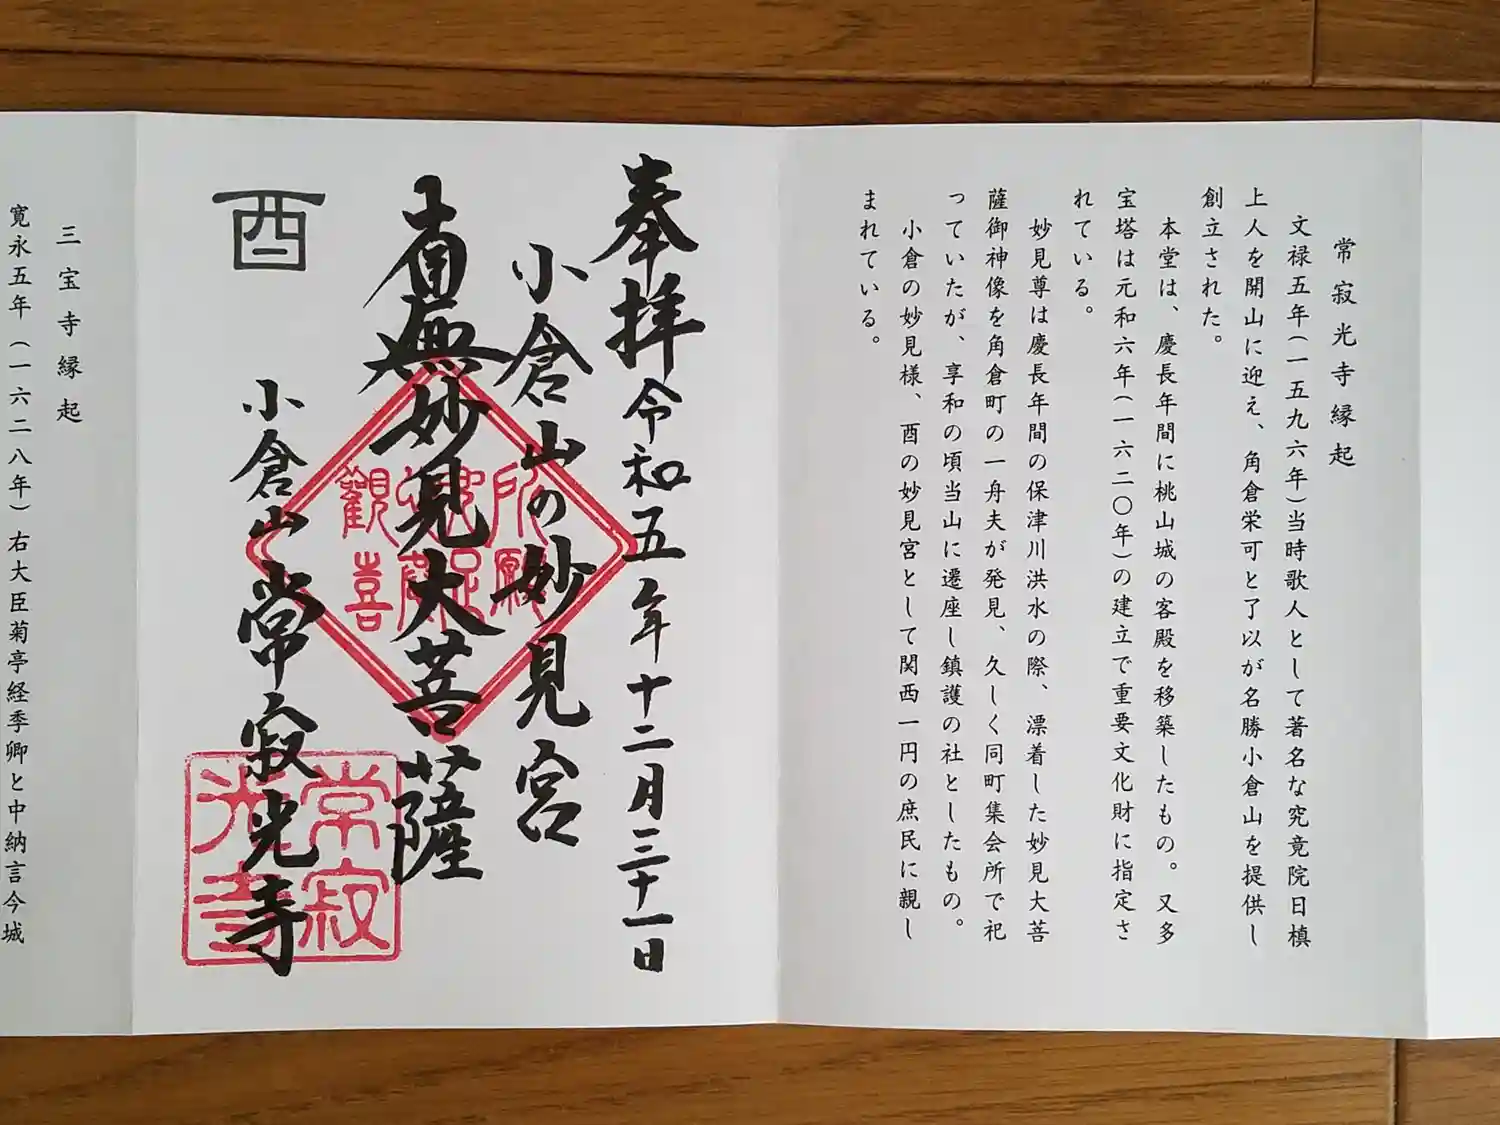 常寂光寺縁起
文禄五年(一五九六年)当時歌人として著名な究竟院日槙
上人を開山に迎え、角倉栄可と了以が名勝小倉山を提供し
創立された。
本堂は、慶長年間に桃山城の客殿を移築したもの。又多
宝塔は元和六年(一六二〇年)の建立で重要文化財に指定さ
れている。
妙見尊は慶長年間の保津川洪水の際、漂着した妙見大菩
薩御神像を角倉町の一舟夫が発見、久しく同町集会所で祀
っていたが、享和の頃当山に遷座し鎮護の社としたもの。
小倉の妙見様、酉の妙見宮として関西一円の庶民に親し
まれている。
奉拝 令和五年十二月三十一日
小倉山の妙見宮
南無妙見大菩薩
小倉山 常寂光寺
酉
所願
満足
観喜
常寂
光寺
三宝寺縁起
寛永五年(一六二八年)右大臣菊亭経季卿と中納言今城